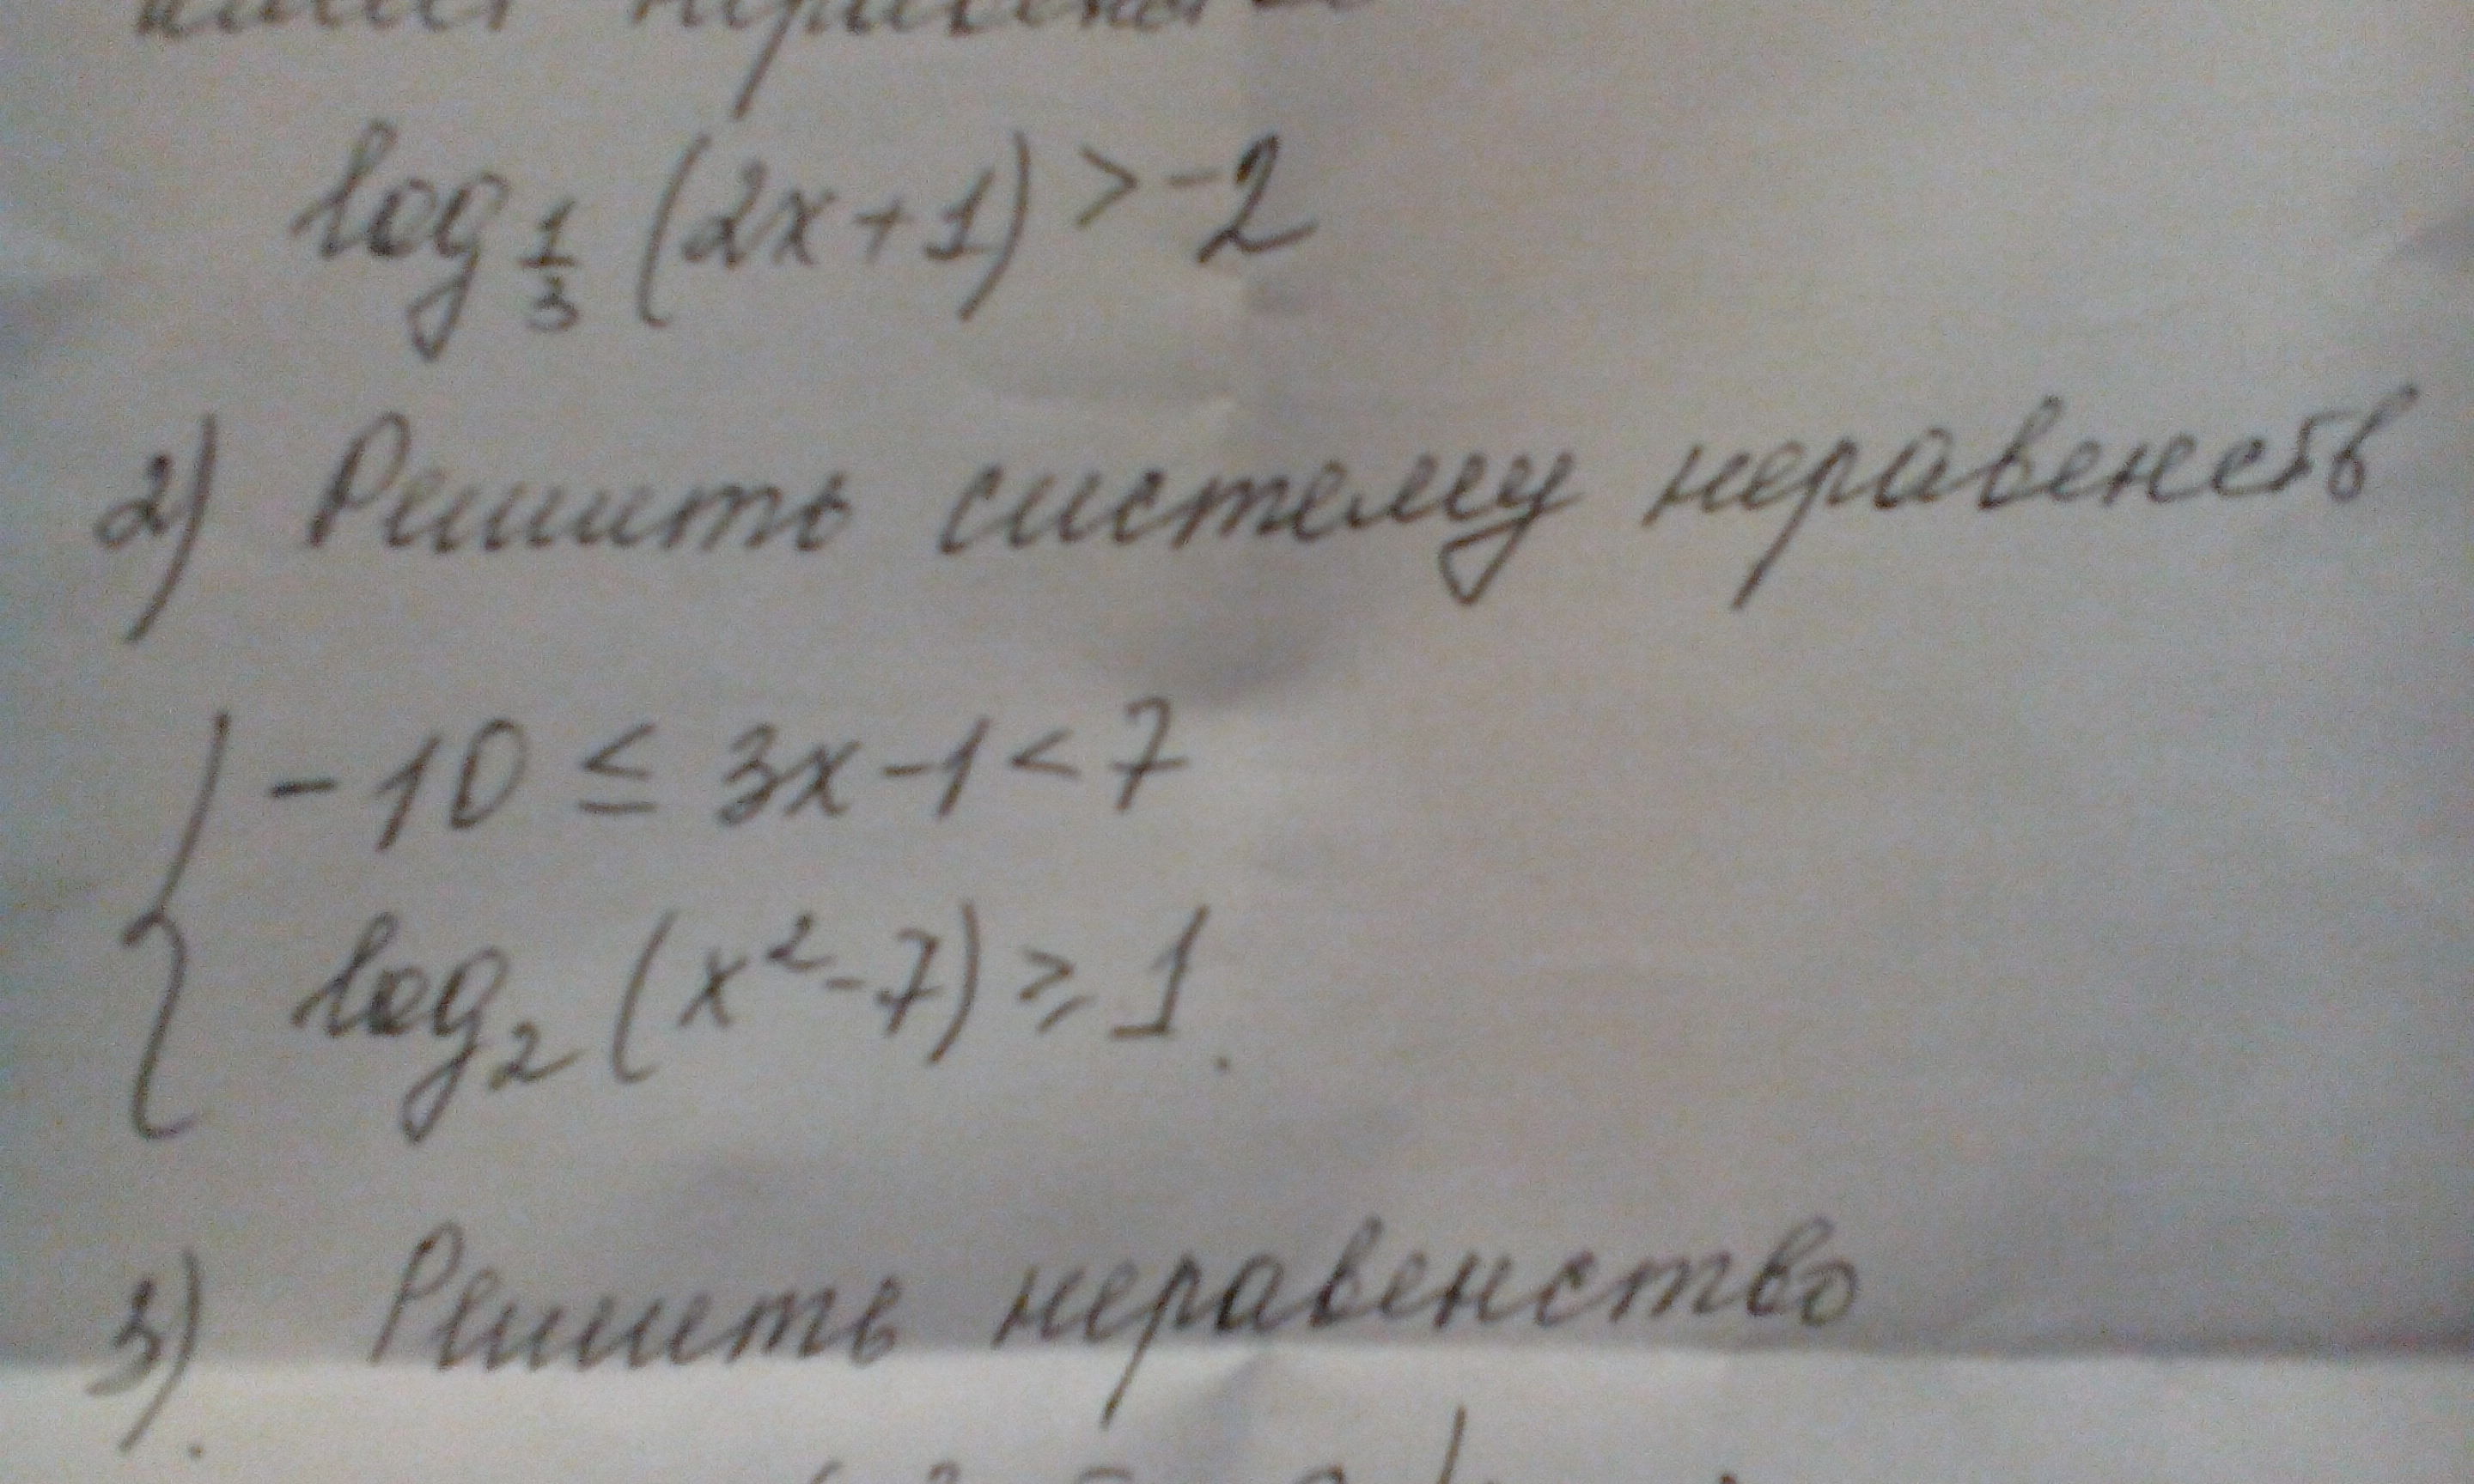 имеет
log 1/3 (2x+1) > -2
2) Решить систему неравенств
{ -10 ≤ 3x-1 < 7
log₂ (x²-7) ≥ 1.
3). Решить неравенство